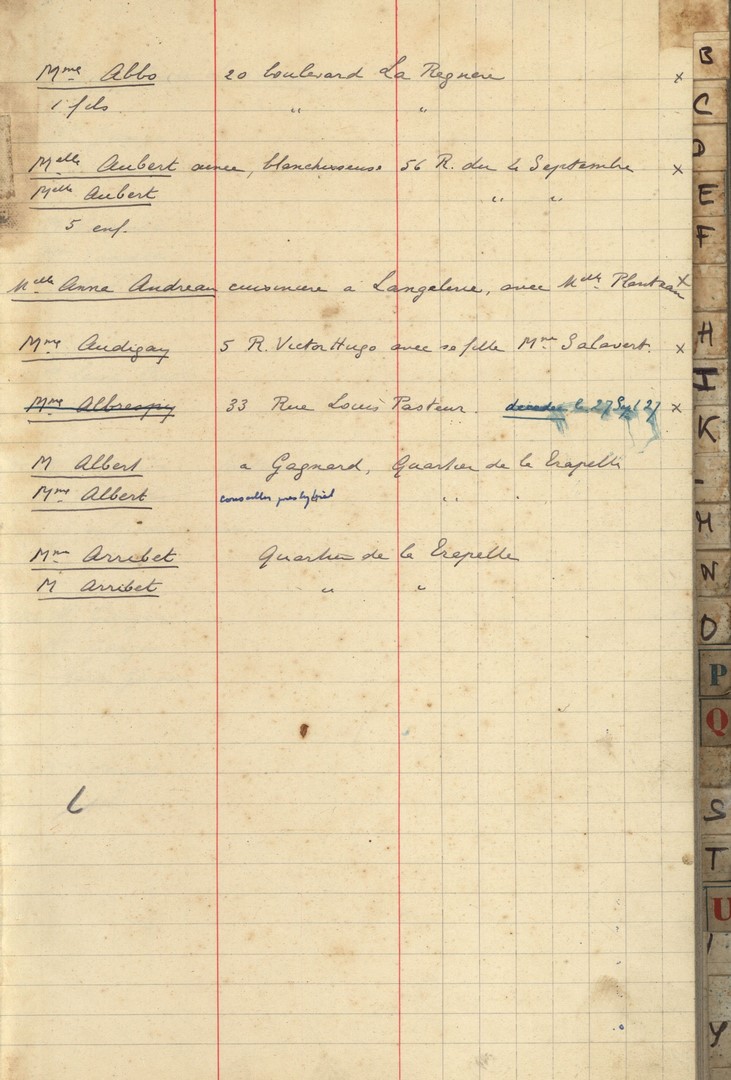 Mme Abbo 20 boulevard La Regnere x
1 fils " "
Melle Aubert ainée, blanchisseuse 56 R. du 4 Septembre x
Melle Aubert " "
5 enf.
Melle Anna Andreau cuisinière a Langalerie, avec Melle x
Mme Audigay 5 R. Victor Hugo avec sa fille Mme Salavert. x
Mme 33 Rue Louis Pasteur. décédée le 27 Sept 27 x
M Albert a Gagnard, Quartier de la
Mme Albert conseiller presbytéral " "
Mme Arribet Quartier de la
M Arribet " "
B
C
D
E
F
H
I
K
M
N
O
P
Q
S
T
U
Y